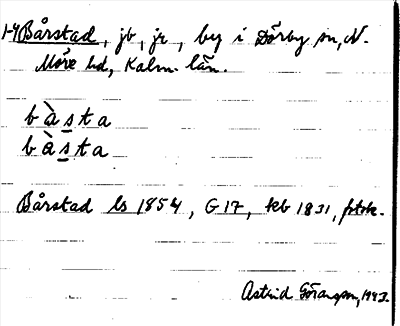 1-4 Bårstad, jb, jr, by i Dörby sn, N.
Möre hd, Kalm. län.
bàsta
bàsta
Bårstad ls 1854, G 17, kb 1831, ptok.
Astrid Göransson, 1943.